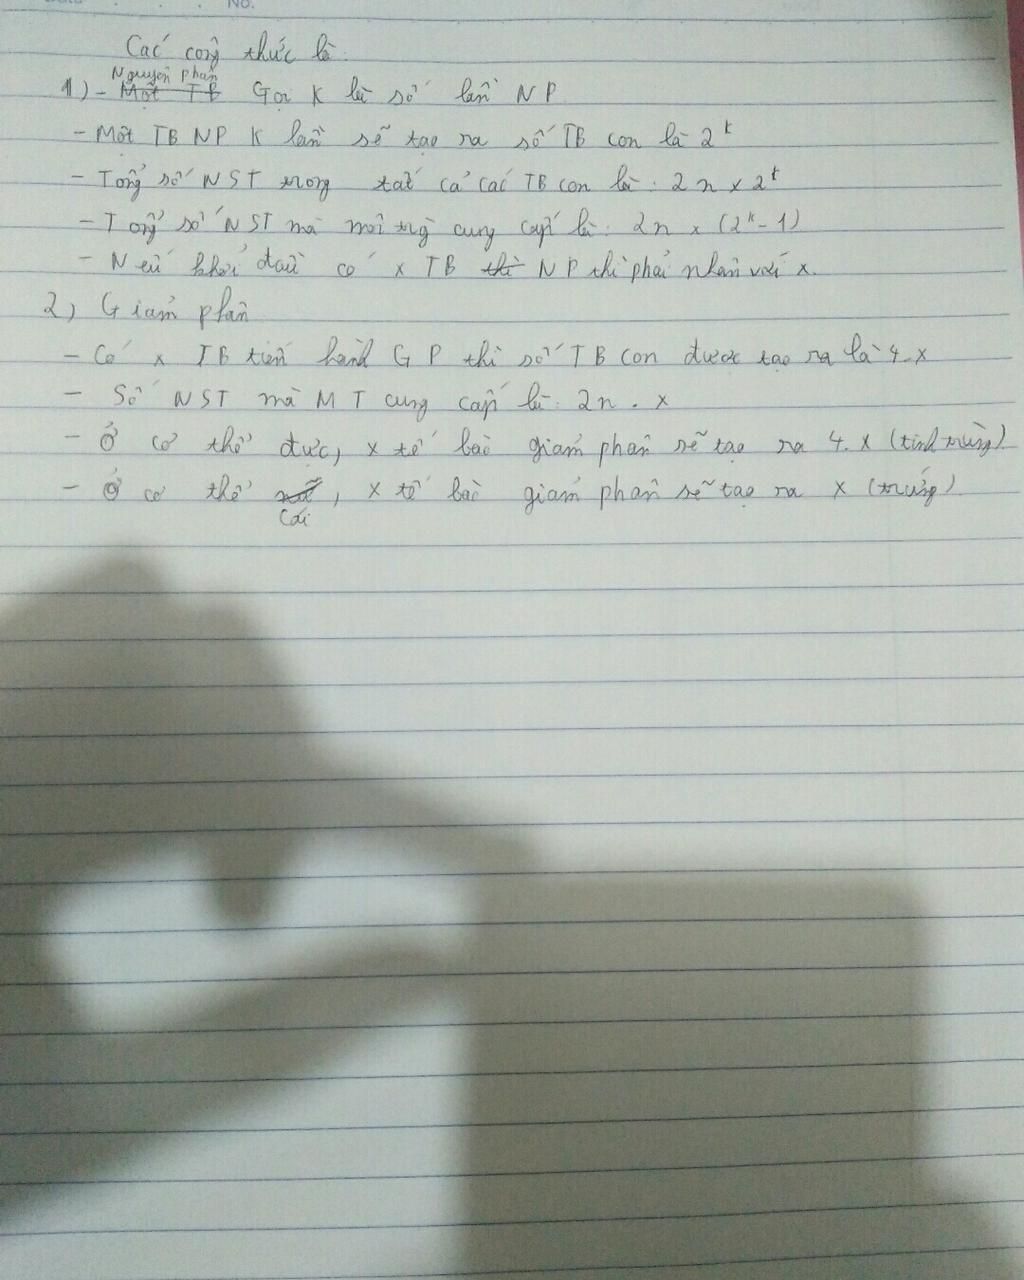 No.
Các công thức là:
Nguyên phân
1) - Một TB Gọi K là số lần NP
- Một TB NP K lần sẽ tạo ra số TB con là 2^k
- Tổng số NST trong tất cả các TB con là: 2n x 2^k
- Tổng số NST mà môi trg cung cấp là: 2n x (2^k - 1)
- Nếu khởi đầu có x TB thì NP thì phải nhân với x.
2) Giảm phân
- Có x TB tiến hành GP thì số TB con được tạo ra là 4.x
- Số NST mà MT cung cấp là: 2n . x
- Ở cơ thể đực, x tế bào giảm phân sẽ tạo ra 4.x (tinh trùng)
- Ở cơ thể , x tế bào giảm phân sẽ tạo ra x (trứng).
cái